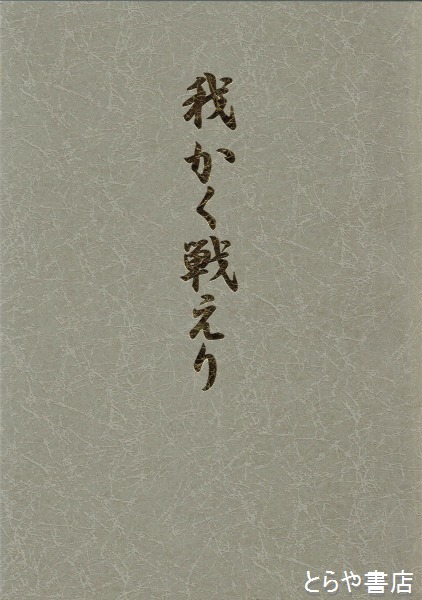 我かく戦えり
とらや書店